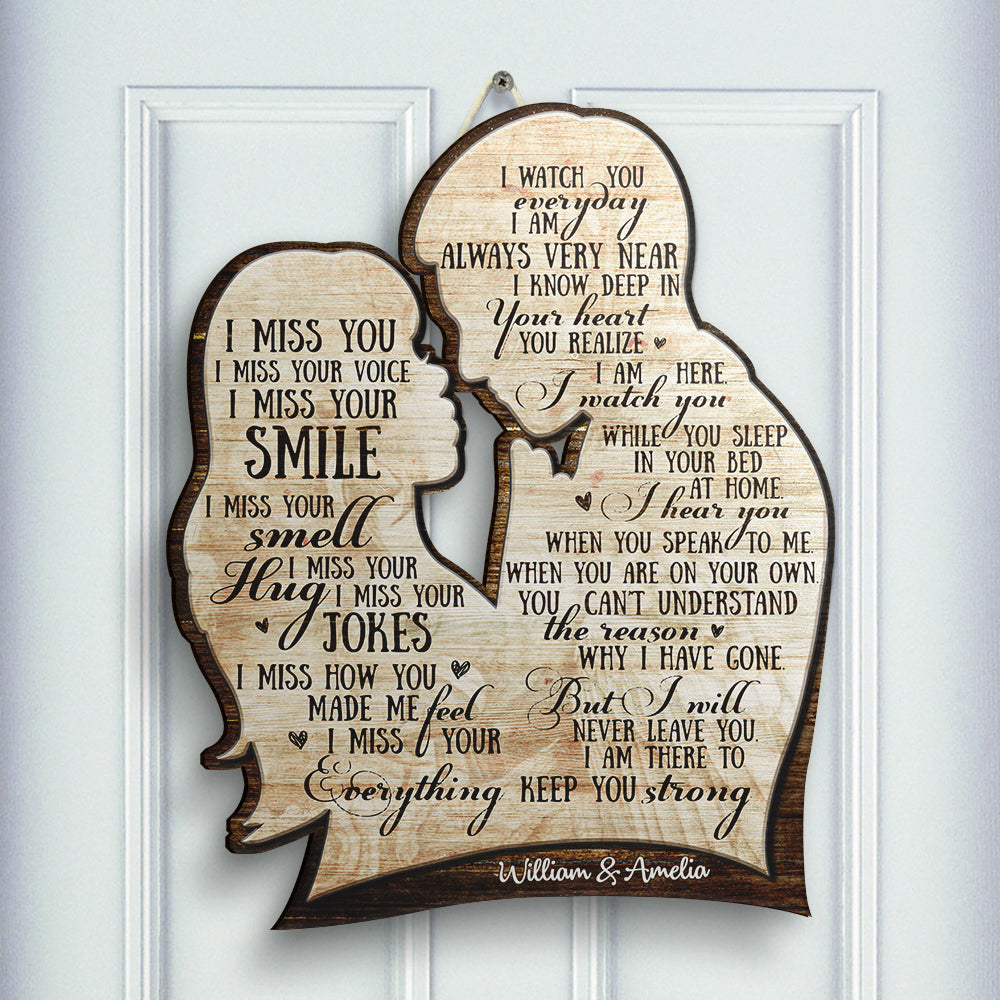 I MISS YOU
I MISS YOUR VOICE
I MISS YOUR
SMILE
I MISS YOUR
smell
I MISS YOUR
Hug I MISS YOUR
JOKES
I MISS HOW YOU
MADE ME feel
I MISS YOUR
Everything
I WATCH YOU
everyday
I AM
ALWAYS VERY NEAR
I KNOW DEEP IN
Your heart
YOU REALIZE
I AM HERE.
I watch you
WHILE YOU SLEEP
IN YOUR BED
AT HOME.
I hear you
WHEN YOU SPEAK TO ME.
WHEN YOU ARE ON YOUR OWN.
YOU CAN'T UNDERSTAND
the reason
WHY I HAVE GONE.
But I will
NEVER LEAVE YOU.
I AM THERE TO
KEEP YOU strong
William & Amelia